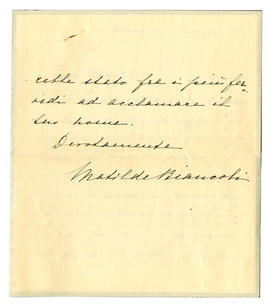 cette stato fra i più fer-
vidi ad acclamare il
suo nome.
Devotamente
Matilde Biancoli